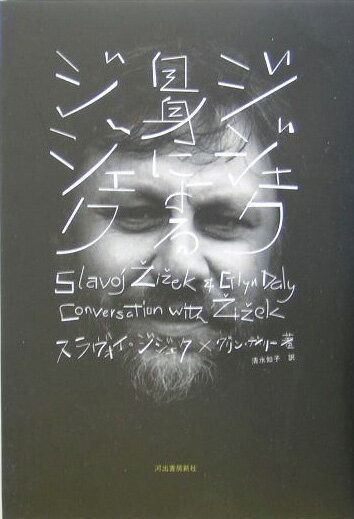 ジジェク
自身による
ジジェク
Slavoj Žižek & Glyn Daly
Conversation with Žižek
スラヴォイ・ジジェク×グリン・デイリー 著
清水知子 訳
河出書房新社